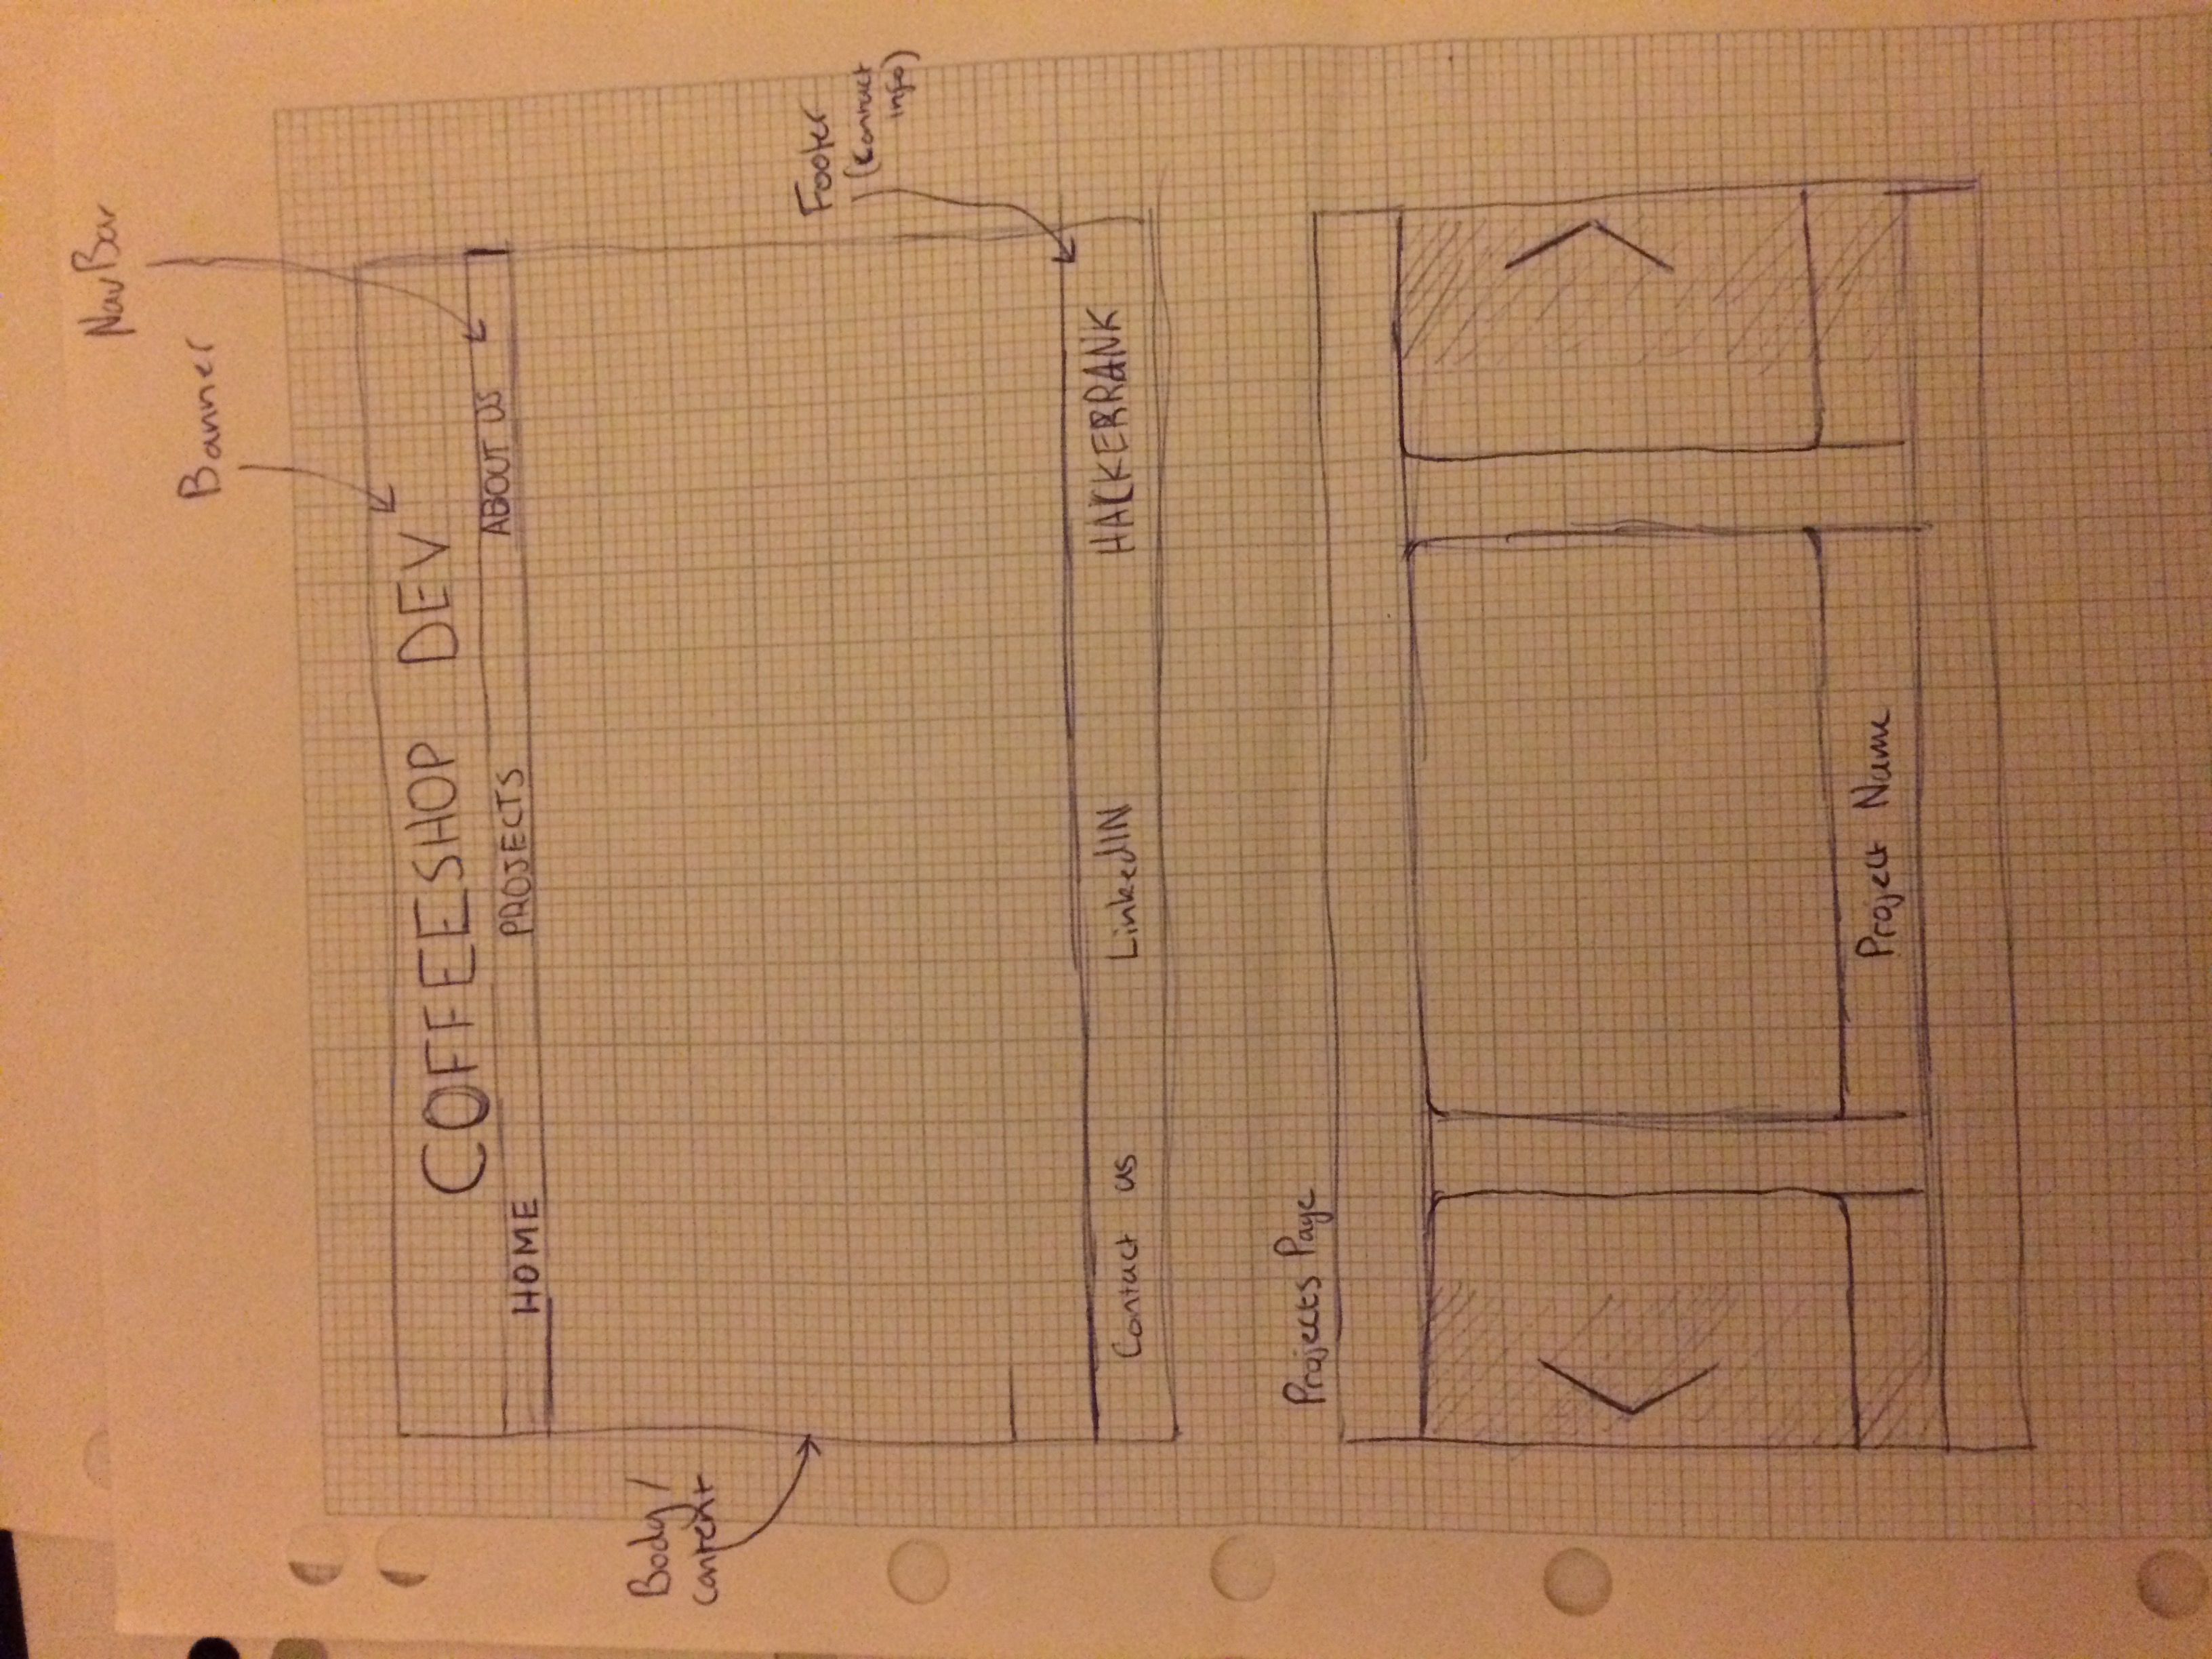 NavBar
Banner
COFFEESHOP DEV
HOME PROJECTS ABOUT US
Body/
content
Footer
(Contact
info)
Contact us LinkedIN HACKERRANK
Projects Page
Project Name